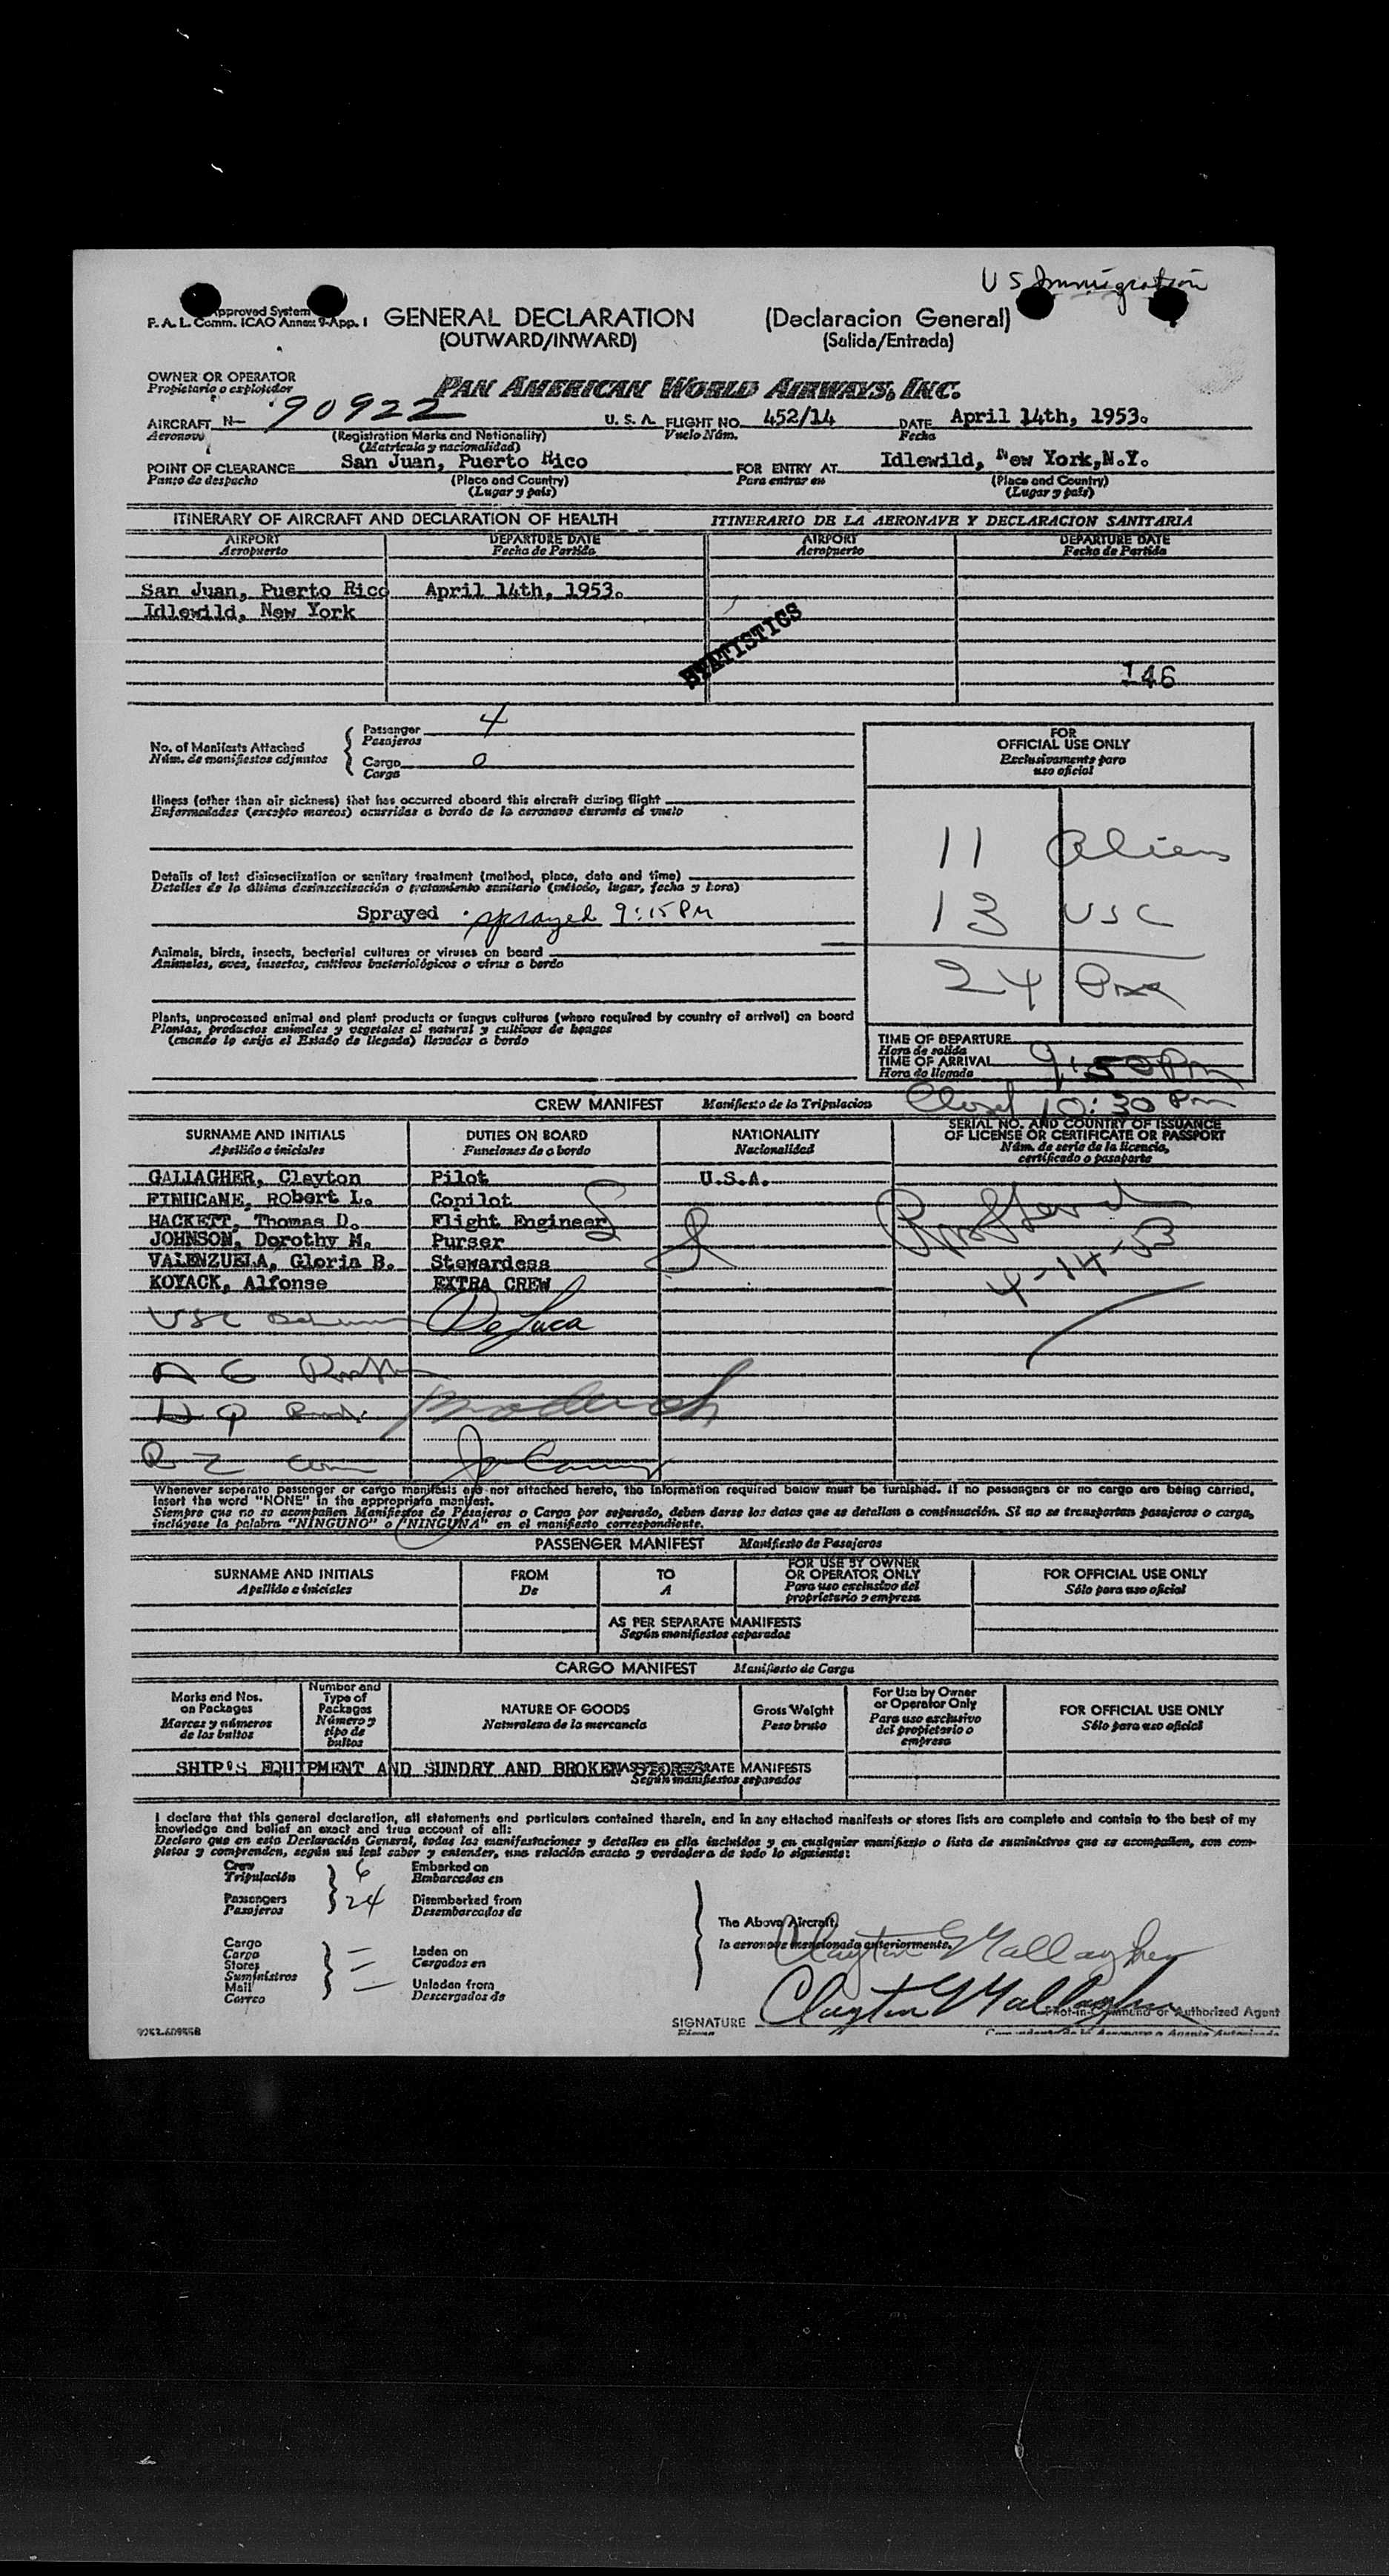 US Immigration
Approved System
F. A. L. Comm. ICAO Annex 9-App. 1
GENERAL DECLARATION (Declaracion General)
(OUTWARD/INWARD) (Salida/Entrada)
OWNER OR OPERATOR
Propietario o explotador
PAN AMERICAN WORLD AIRWAYS, INC.
AIRCRAFT N- 90922 U. S. A. FLIGHT NO. 452/14 DATE April 14th, 1953.
Aeronave (Registration Marks and Nationality) Vuelo Núm. Fecha
(Matricula y nacionalidad)
POINT OF CLEARANCE San Juan, Puerto Rico FOR ENTRY AT Idlewild, New York,N.Y.
Punto de despacho (Place and Country) Para entrar en (Place and Country)
(Lugar y país) (Lugar y país)
ITINERARY OF AIRCRAFT AND DECLARATION OF HEALTH ITINERARIO DE LA AERONAVE Y DECLARACION SANITARIA
AIRPORT DEPARTURE DATE AIRPORT DEPARTURE DATE
Aeropuerto Fecha de Partida Aeropuerto Fecha de Partida
San Juan, Puerto Rico April 14th, 1953.
Idlewild, New York
STATISTICS
146
No. of Manifests Attached
Núm. de manifiestos adjuntos
Passenger 4
Pasajeros
Cargo 0
Carga
FOR
OFFICIAL USE ONLY
Exclusivamente para
uso oficial
11 Aliens
13 USC
24 Pax
Illness (other than air sickness) that has occurred aboard this aircraft during flight
Enfermedades (excepto mareos) ocurridas a bordo de la aeronave durante el vuelo
Details of last disinsectization or sanitary treatment (method, place, date and time)
Detalles de la última desinsectización o tratamiento sanitario (método, lugar, fecha y hora)
Sprayed sprayed 9:15 PM
Animals, birds, insects, bacterial cultures or viruses on board
Animales, aves, insectos, cultivos bacteriológicos o virus a bordo
Plants, unprocessed animal and plant products or fungus cultures (where required by country of arrival) on board
Plantas, productos animales y vegetales al natural y cultivos de hongos
(cuando lo exija el Estado de llegada) llevados a bordo
TIME OF DEPARTURE
Hora de salida
TIME OF ARRIVAL 9:50 PM
Hora de llegada
Closed 10:30 PM
CREW MANIFEST Manifiesto de la Tripulacion
SURNAME AND INITIALS DUTIES ON BOARD NATIONALITY SERIAL NO. AND COUNTRY OF ISSUANCE
OF LICENSE OR CERTIFICATE OR PASSPORT
Apellido e iniciales Funciones de a bordo Nacionalidad Núm. de serie de la licencia,
certificado o pasaporte
GALLAGHER, Clayton Pilot U.S.A.
FINUCANE, Robert L. Copilot
HACKETT, Thomas D. Flight Engineer
JOHNSON, Dorothy M. Purser
VALENZUELA, Gloria B. Stewardess
KOYACK, Alfonse EXTRA CREW
4-14-53
USC DeLuca
Whenever separate passenger or cargo manifests are not attached hereto, the information required below must be furnished. If no passengers or no cargo are being carried,
insert the word "NONE" in the appropriate manifest.
Siempre que no se acompañen Manifiestos de Pasajeros o Carga por separado, deben darse los datos que se detallan a continuación. Si no se transportan pasajeros o carga,
inclúyase la palabra "NINGUNO" o "NINGUNA" en el manifiesto correspondiente.
PASSENGER MANIFEST Manifiesto de Pasajeros
SURNAME AND INITIALS FROM TO FOR USE BY OWNER
OR OPERATOR ONLY FOR OFFICIAL USE ONLY
Apellido e iniciales De A Para uso exclusivo del
propietario o empresa Sólo para uso oficial
AS PER SEPARATE MANIFESTS
Según manifiestos separados
CARGO MANIFEST Manifiesto de Carga
Marks and Nos.
on Packages
Marcas y números
de los bultos
Number and
Type of
Packages
Número y
tipo de
bultos
NATURE OF GOODS
Naturaleza de la mercancía
Gross Weight
Peso bruto
For Use by Owner
or Operator Only
Para uso exclusivo
del propietario o
empresa
FOR OFFICIAL USE ONLY
Sólo para uso oficial
SHIP'S EQUIPMENT AND SUNDRY AND BROKEN STORES
AS PER SEPARATE MANIFESTS
Según manifiestos separados
I declare that this general declaration, all statements and particulars contained therein, and in any attached manifests or stores lists are complete and contain to the best of my
knowledge and belief an exact and true account of all:
Declaro que en esta Declaración General, todas las manifestaciones y detalles en ella incluidos y en cualquier manifiesto o lista de suministros que se acompañen, son com-
pletos y comprenden, según mi leal saber y entender, una relación exacta y verdadera de todo lo siguiente:
Crew 6 Embarked on
Tripulación Embarcados en
Passengers 24 Disembarked from
Pasajeros Desembarcados de
Cargo
Carga
Stores
Suministros
Mail
Correo
Laden on
Cargados en
Unladen from
Descargados de
The Above Aircraft.
la aeronave mencionada anteriormente.
Clayton Gallagher
SIGNATURE Clayton Gallagher
Firma
Pilot-in-Command or Authorized Agent
Comandante de la Aeronave o Agente Autorizado